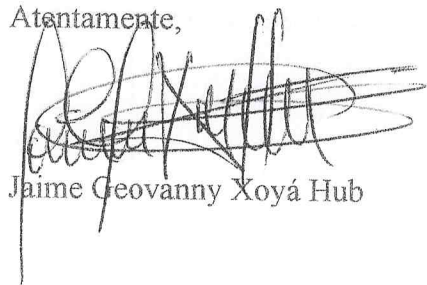 Atentamente,
Jaime Geovanny Xoyá Hub